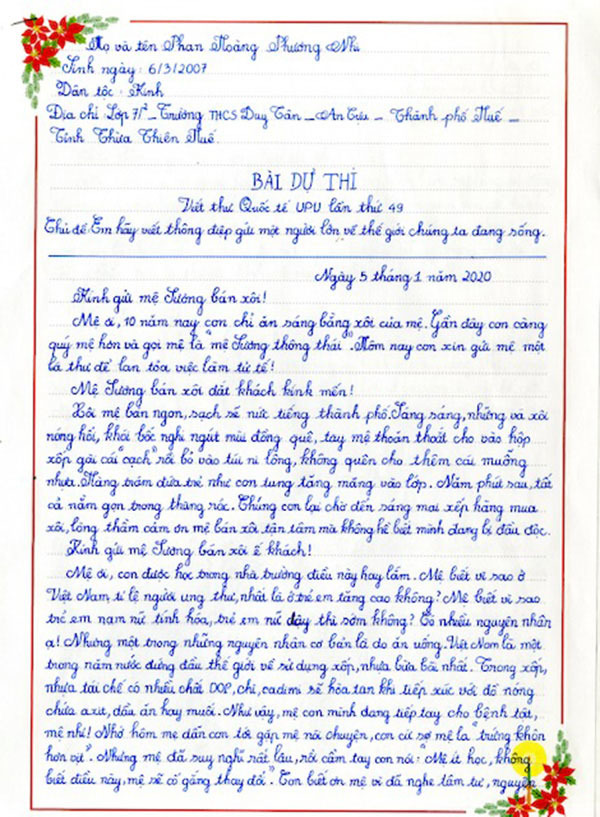 Họ và tên Phan Hoàng Phương Nhi
Sinh ngày: 6/3/2007
Dân tộc: Kinh
Địa chỉ: Lớp 7/1 - Trường THCS Duy Tân - An Cựu - Thành phố Huế -
Tỉnh Thừa Thiên Huế.
BÀI DỰ THI
Viết thư Quốc tế UPU lần thứ 49
Chủ đề: Em hãy viết thông điệp gửi một người lớn về thế giới chúng ta đang sống.
Ngày 5 tháng 1 năm 2020
Kính gửi mệ Sương bán xôi!
Mệ ơi, 10 năm nay con chỉ ăn sáng bằng xôi của mệ. Gần đây con càng
quý mệ hơn và gọi mệ là "mệ Sương thông thái". Hôm nay con xin gửi mệ một
lá thư để lan tỏa việc làm tử tế!
Mệ Sương bán xôi đắt khách kính mến!
Xôi mệ bán ngon, sạch sẽ nức tiếng thành phố. Sáng sáng, những vá xôi
nóng hổi, khói bốc nghi ngút mùi đồng quê, tay mệ thoăn thoắt cho vào hộp
xốp gài cái "cạch" rồi bỏ vào túi ni lông, không quên cho thêm cái muỗng
nhựa. Hàng trăm đứa trẻ như con tung tăng mang vào lớp. Năm phút sau, tất
cả nằm gọn trong thùng rác. Chúng con lại chờ đến sáng mai xếp hàng mua
xôi, lòng thầm cảm ơn mệ bán xôi tận tâm mà không hề biết mình đang bị đầu độc.
Kính gửi mệ Sương bán xôi ế khách!
Mệ ơi, con được học trong nhà trường điều này hay lắm. Mệ biết vì sao ở
Việt Nam, tỉ lệ người ung thư, nhất là ở trẻ em tăng cao không? Mệ biết vì sao
trẻ em nam nữ tính hóa, trẻ em nữ dậy thì sớm không? Có nhiều nguyên nhân
ạ! Nhưng một trong những nguyên nhân cơ bản là do ăn uống. Việt Nam là một
trong năm nước đứng đầu thế giới về sử dụng xốp, nhựa bừa bãi nhất. Trong xốp,
nhựa tái chế có nhiều chất DOP, chì, cadimi sẽ hòa tan khi tiếp xúc với đồ nóng
chứa axit, dầu ăn hay muối. Như vậy, mệ con mình đang tiếp tay cho bệnh tật,
mệ nhỉ! Nhớ hôm mẹ dẫn con tới gặp mệ nói chuyện, con cứ sợ mệ la "trứng khôn
hơn vịt". Nhưng mệ đã suy nghĩ rất lâu, rồi cầm tay con nói: "Mệ ít học, không
biết điều này, mệ sẽ cố gắng thay đổi". Con biết ơn mệ vì đã nghe tâm tư, nguyện